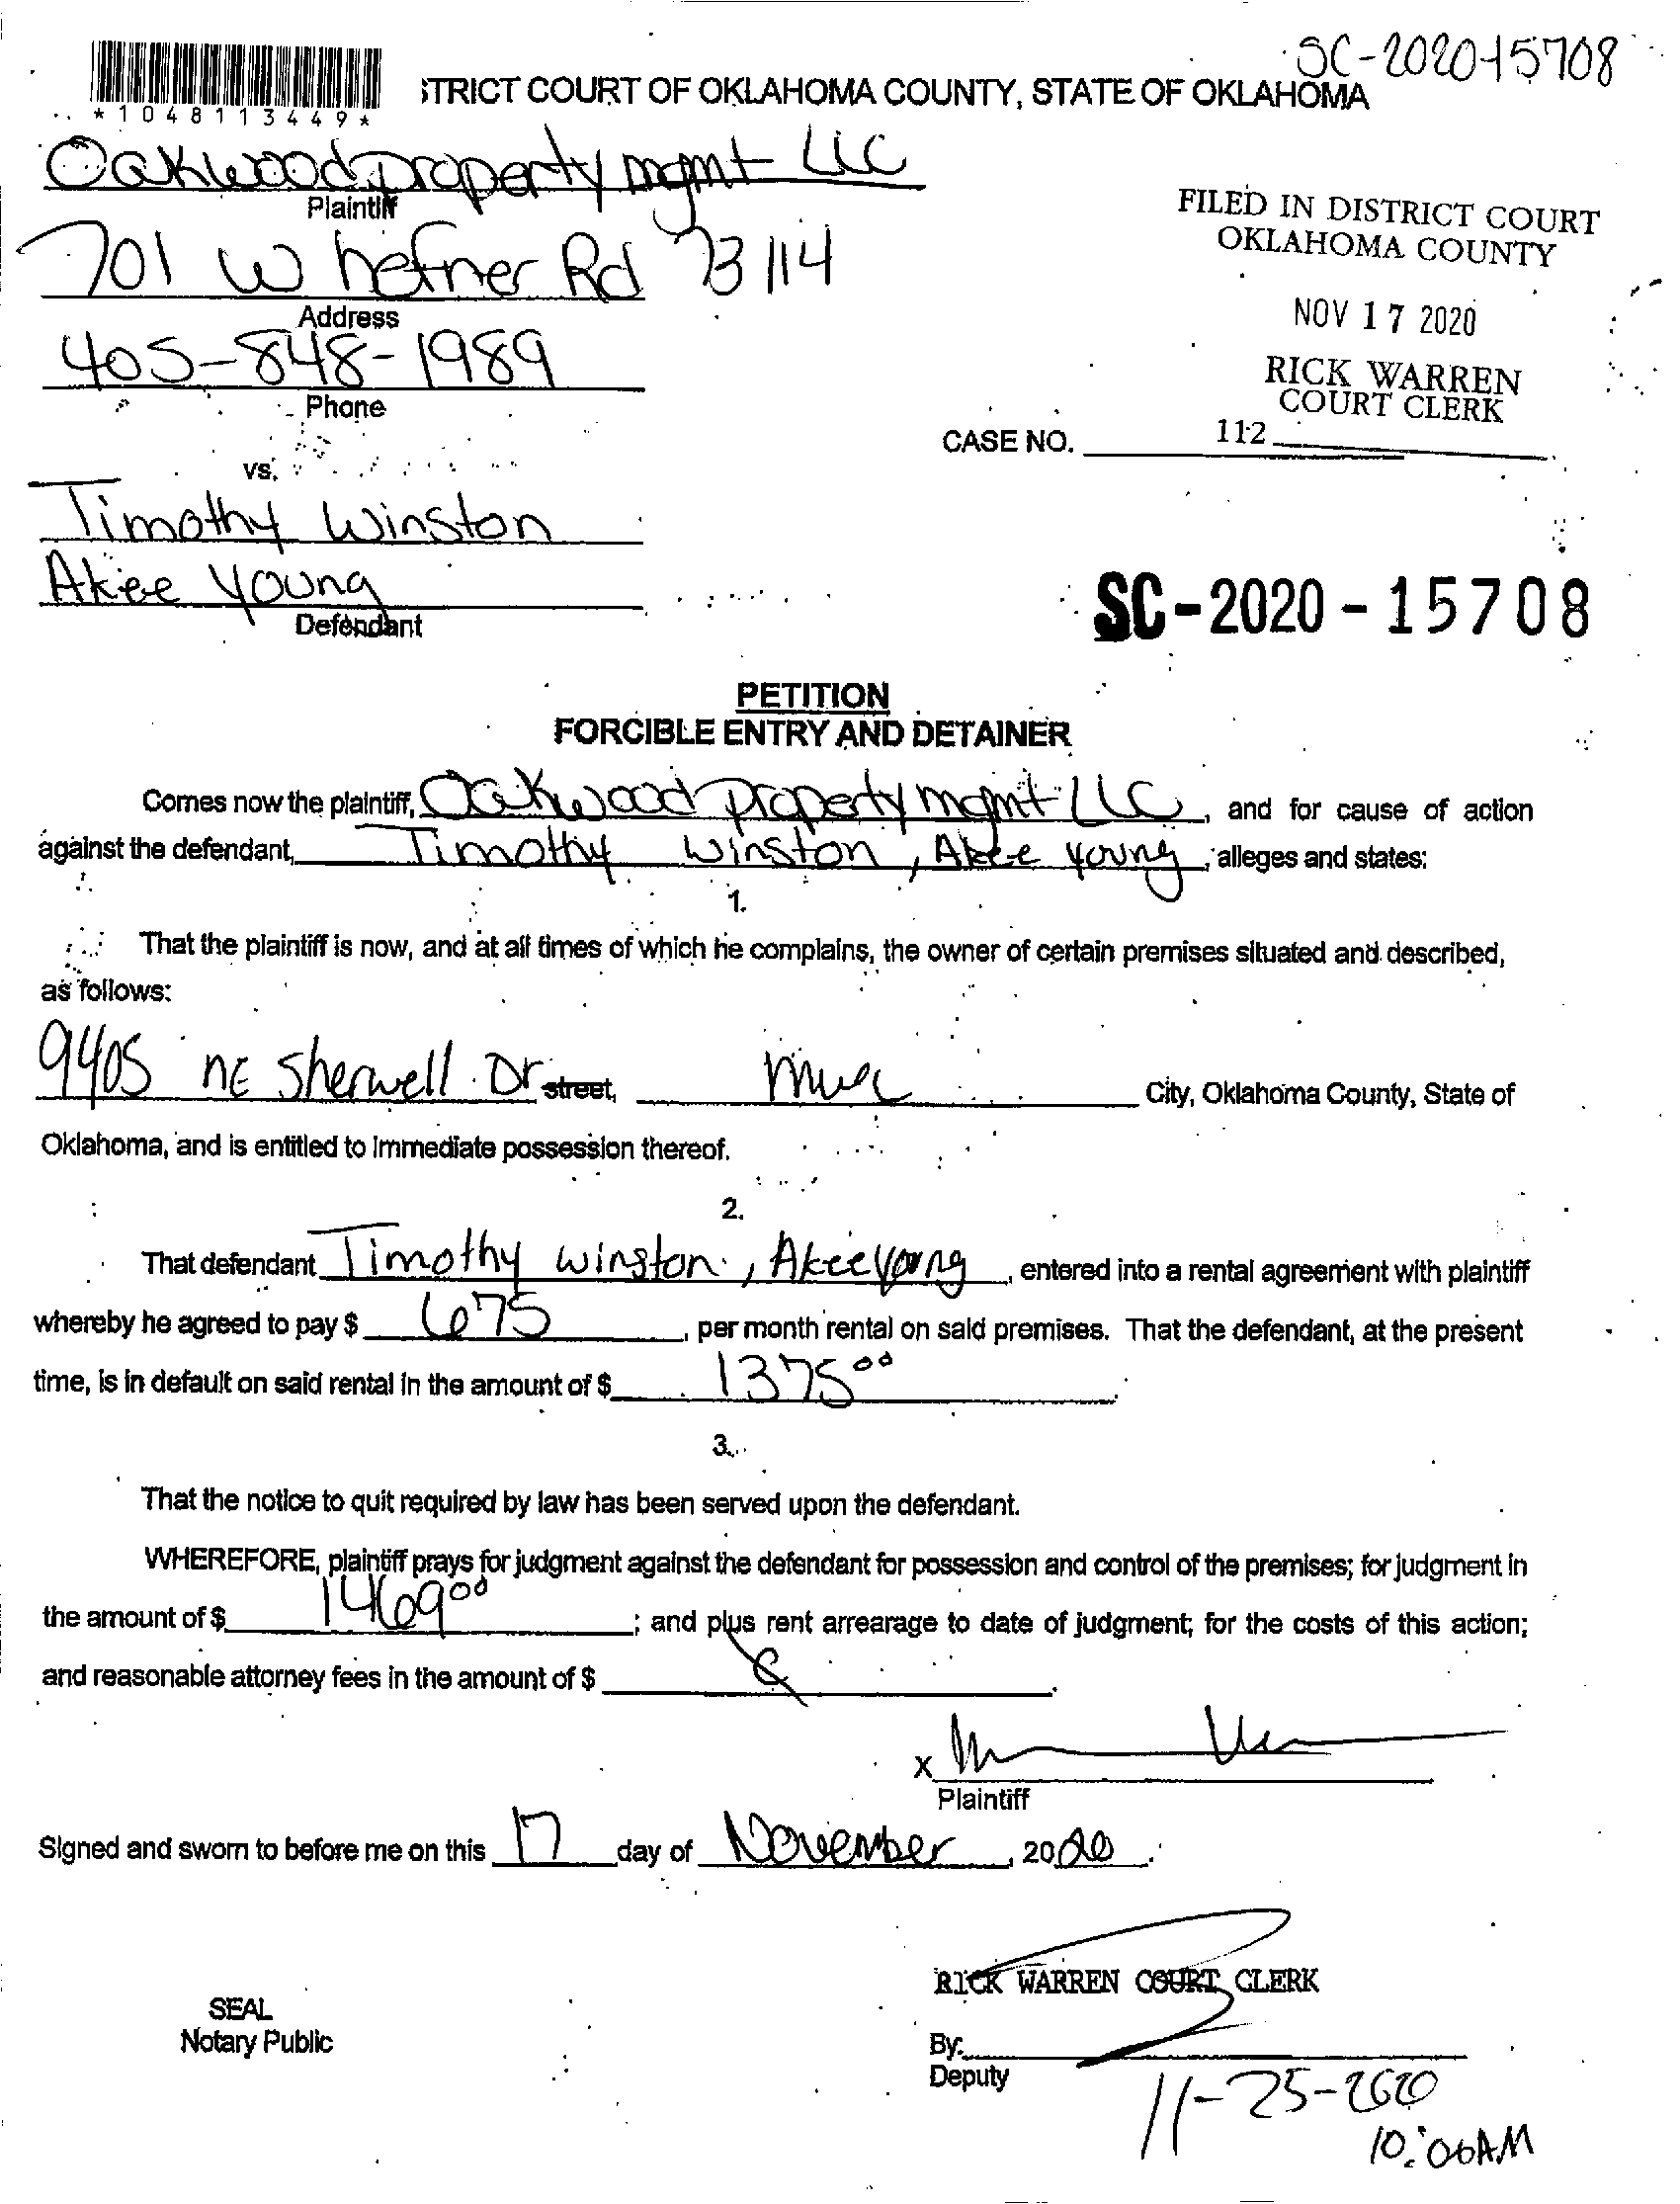 SC-2020-15708
*1048113449*
STRICT COURT OF OKLAHOMA COUNTY, STATE OF OKLAHOMA
Oakwood property mgmt LLC
Plaintiff
FILED IN DISTRICT COURT
OKLAHOMA COUNTY
701 W hefner Rd 73114
Address
NOV 17 2020
405-848-1989
Phone
RICK WARREN
COURT CLERK
CASE NO. 112
vs.
Timothy Winston
Akee Young
Defendant
SC-2020-15708
PETITION
FORCIBLE ENTRY AND DETAINER
Comes now the plaintiff, Oakwood property mgmt LLC, and for cause of action
against the defendant, Timothy Winston, Akee Young, alleges and states:
1.
That the plaintiff is now, and at all times of which he complains, the owner of certain premises situated and described,
as follows:
9405 NE Sherwell Dr street, MWC City, Oklahoma County, State of
Oklahoma, and is entitled to immediate possession thereof.
2.
That defendant Timothy Winston, Akee Young, entered into a rental agreement with plaintiff
whereby he agreed to pay $ 675, per month rental on said premises. That the defendant, at the present
time, is in default on said rental in the amount of $ 1375 00.
3.
That the notice to quit required by law has been served upon the defendant.
WHEREFORE, plaintiff prays for judgment against the defendant for possession and control of the premises; for judgment in
the amount of $ 1469 00; and plus rent arrearage to date of judgment; for the costs of this action;
and reasonable attorney fees in the amount of $
X
Plaintiff
Signed and sworn to before me on this 17 day of November, 2020.
RICK WARREN COURT CLERK
SEAL
Notary Public
By:
Deputy
11-25-2020
10:00AM